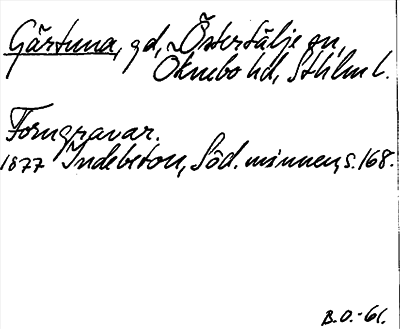 Gärtuna, gd, Östertälje sn,
Öknebo hd, Sthlm l.
Forngravar.
1877 Indebetou, Söd. minnen, s. 168.
B.O.-61.